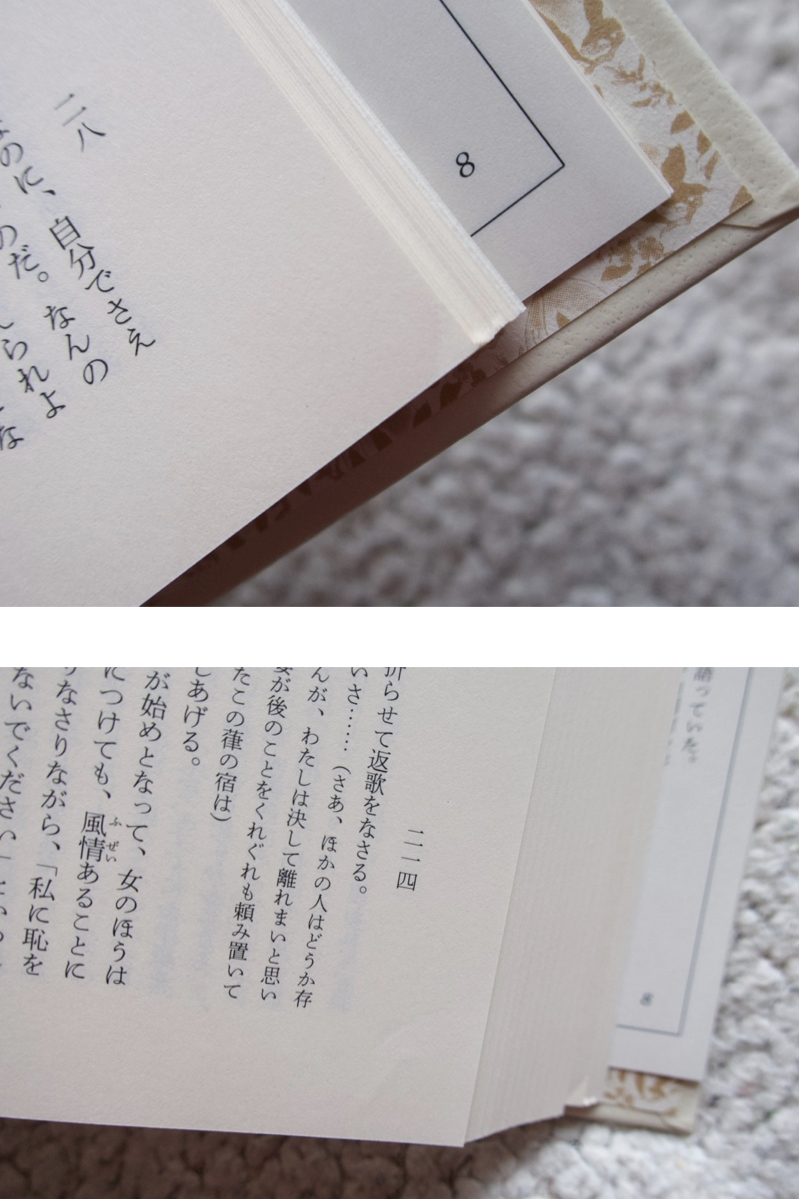 8
二八
のに、自分でさえ
のだ。なんの
られよ
な
語っていた。
8
二一四
折らせて返歌をなさる。
いさ……（さあ、ほかの人はどうか存
んが、わたしは決して離れまいと思い
が後のことをくれぐれも頼み置いて
たこの葎の宿は）
しあげる。
が始めとなって、女のほうは
につけても、風情あることに
ふぜい
りなさりながら、「私に恥を
ないでください」